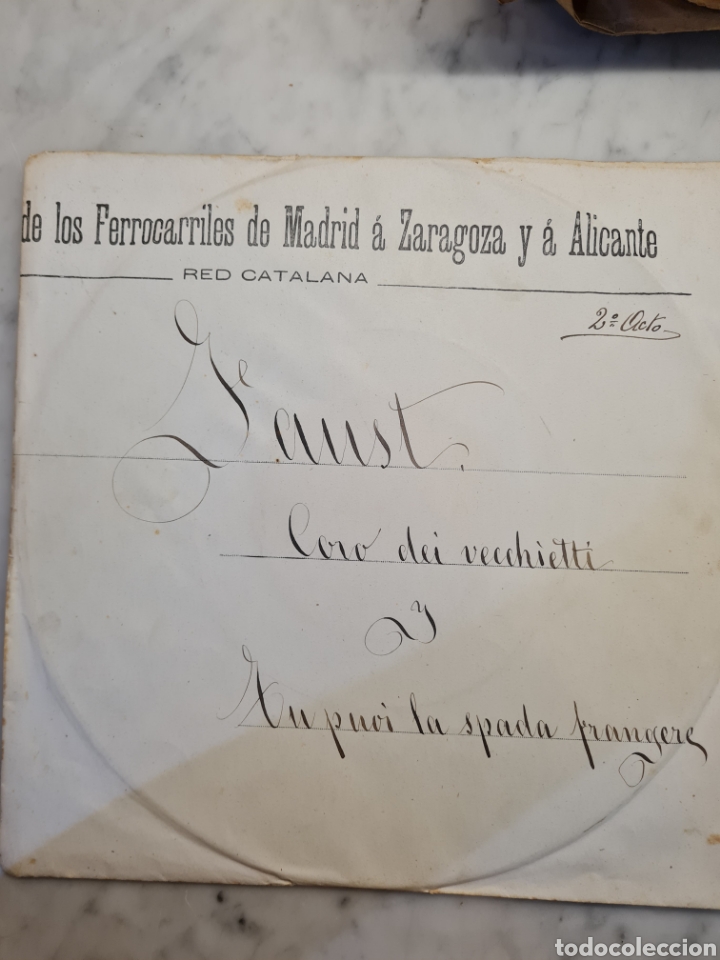 de los Ferrocarriles de Madrid á Zaragoza y á Alicante
RED CATALANA
2º Acto
Faust.
Coro dei vecchietti
y
Tu puoi la spada frangere
todocoleccion